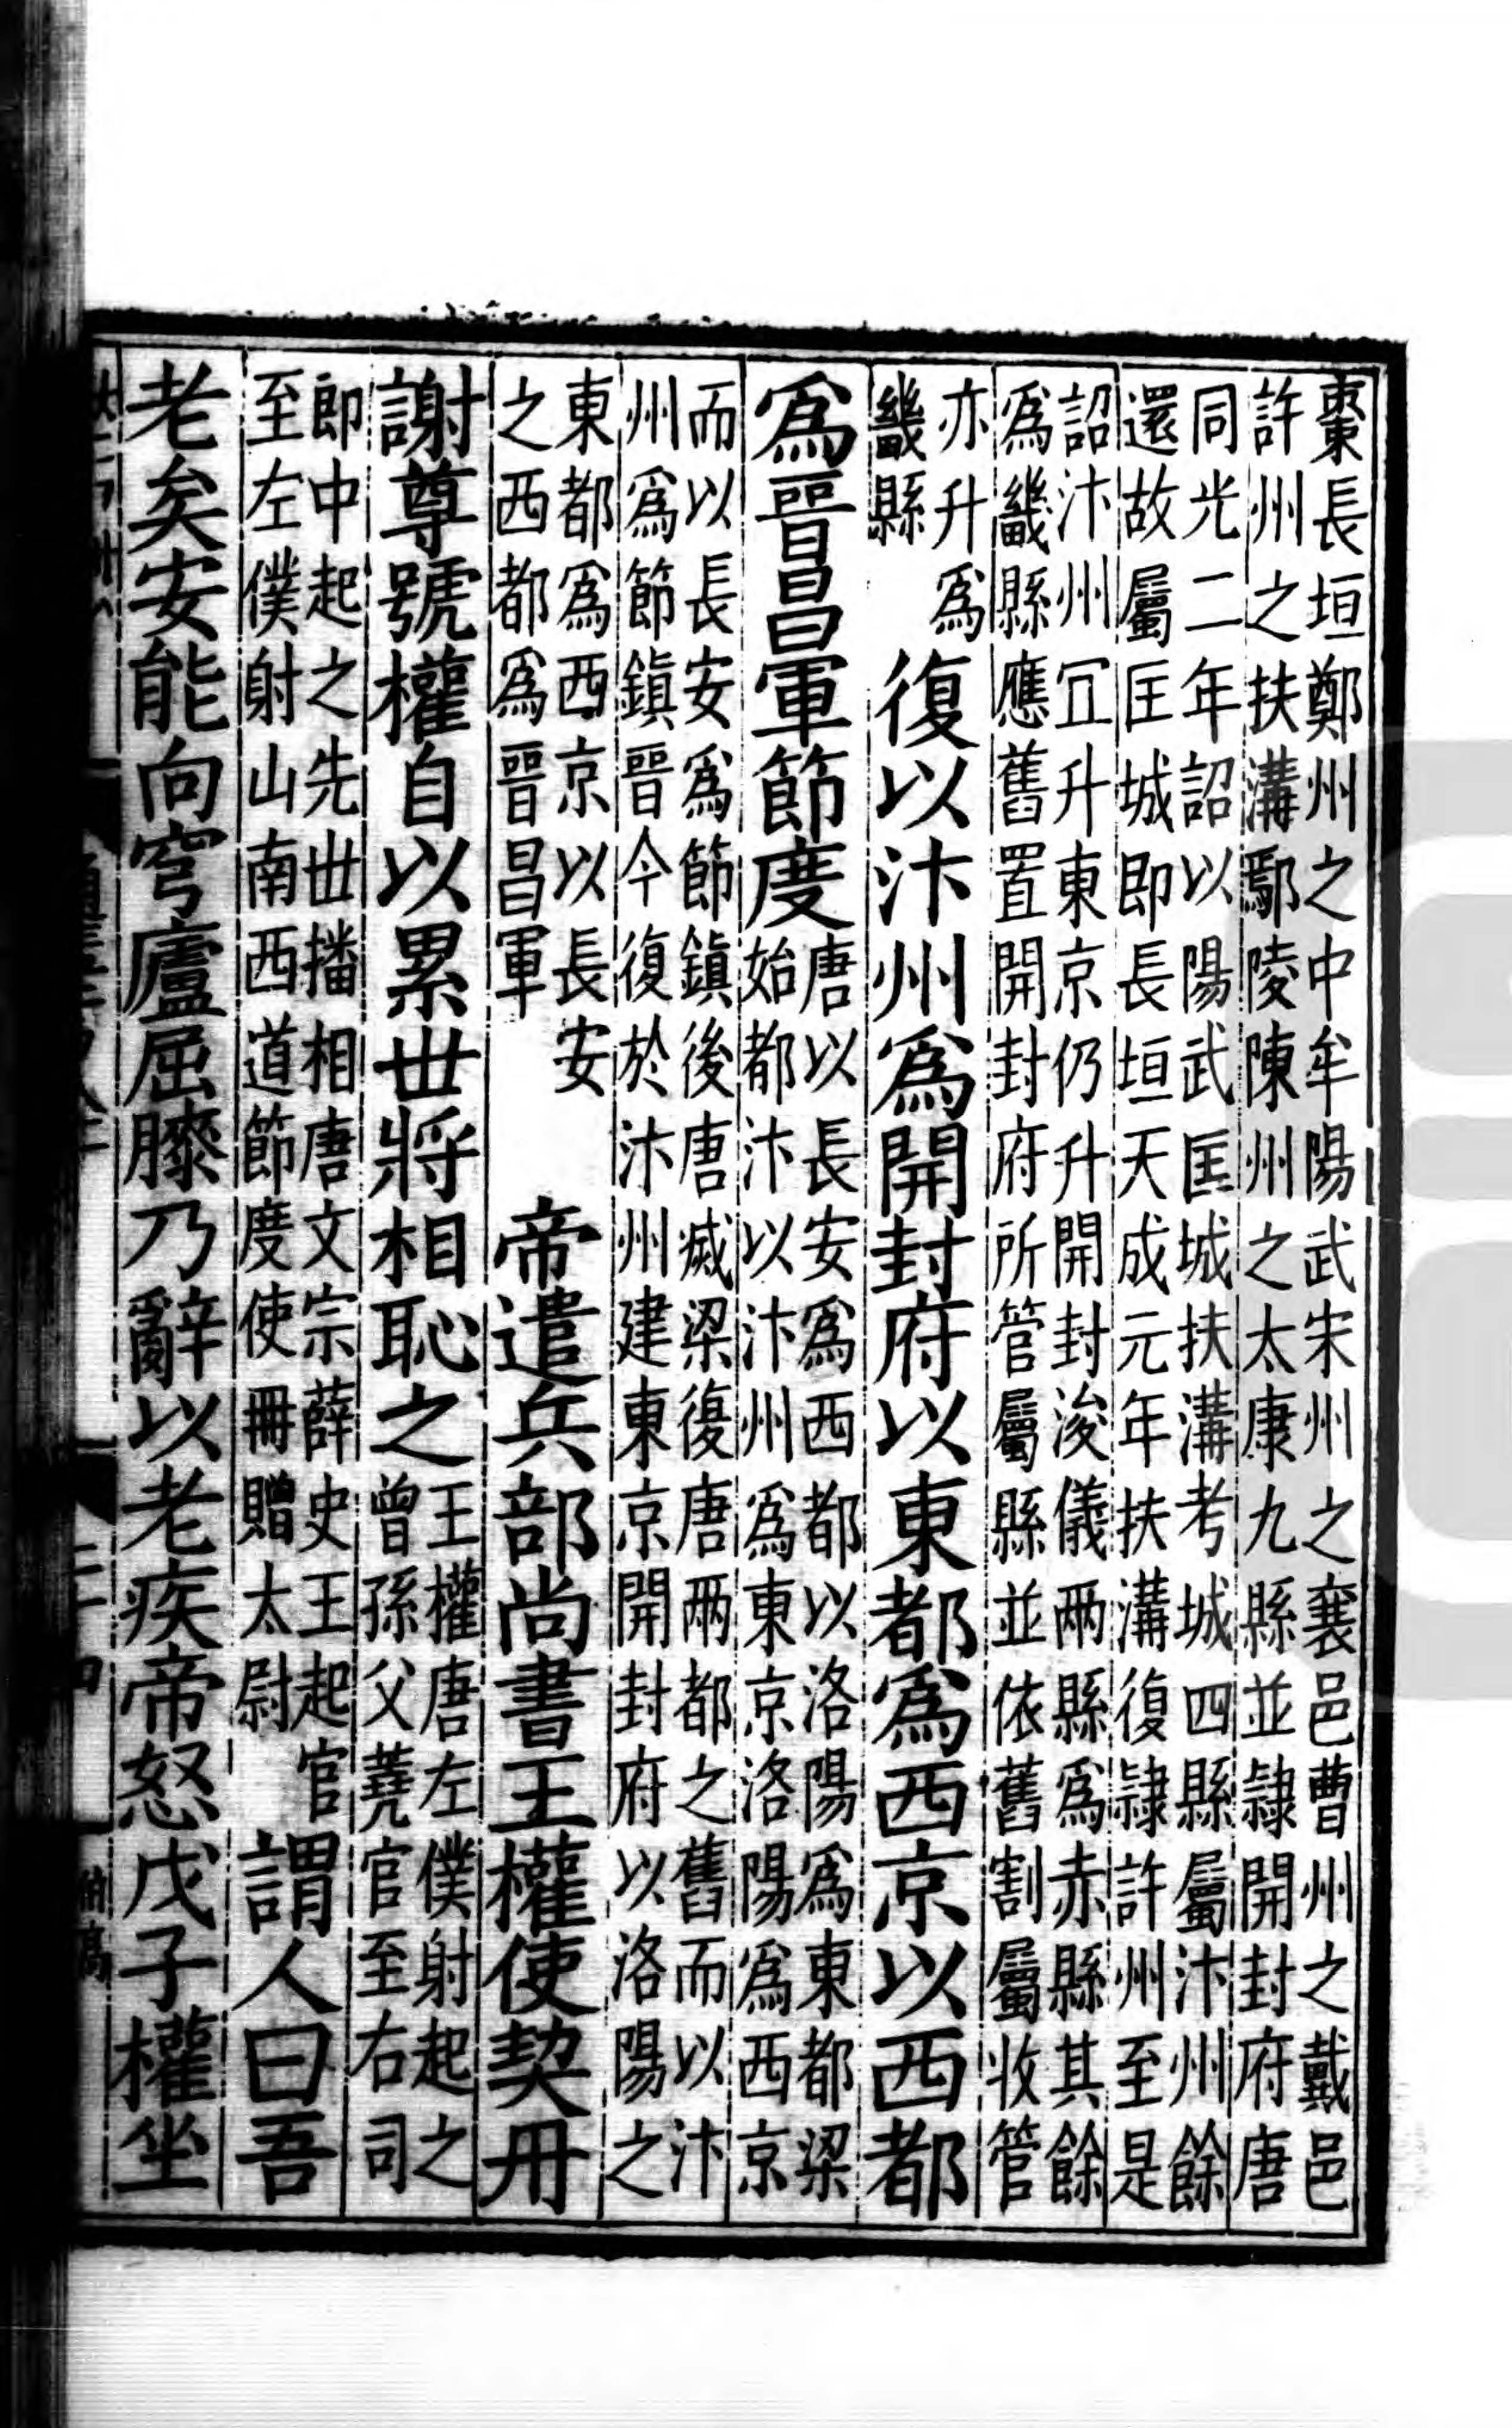 棗長垣鄭州之中牟陽武宋州之襄邑曹州之戴邑
許州之扶溝鄢陵陳州之太康九縣並隸開封府唐
同光二年詔以陽武匡城扶溝考城四縣屬汴州餘
還故屬匡城即長垣天成元年扶溝復隸許州至是
詔汴州冝升東京仍升開封浚儀兩縣為赤縣其餘
爲畿縣應舊置開封府所管屬縣並依舊割屬收管
亦升爲
畿縣
復以汴州爲開封府以東都爲西京以西都
爲晉昌軍節度
唐以長安爲西都以洛陽爲東都梁
始都汴以汴州爲東京洛陽爲西京
而以長安爲節鎮後唐滅梁復唐兩都之舊而以汴
州爲節鎮晉今復於汴州建東京開封府以洛陽之
東都爲西京以長安
之西都爲晉昌軍
帝遣兵部尚書王權使契丹
謝尊號權自以累世將相恥之
王權唐左僕射起之
曾孫父蕘官至右司
郎中起之先世播相唐文宗薛史王起官
至左僕射山南西道節度使冊贈太尉
謂人曰吾
老矣安能向穹廬屈膝乃辭以老疾帝怒戊子權坐